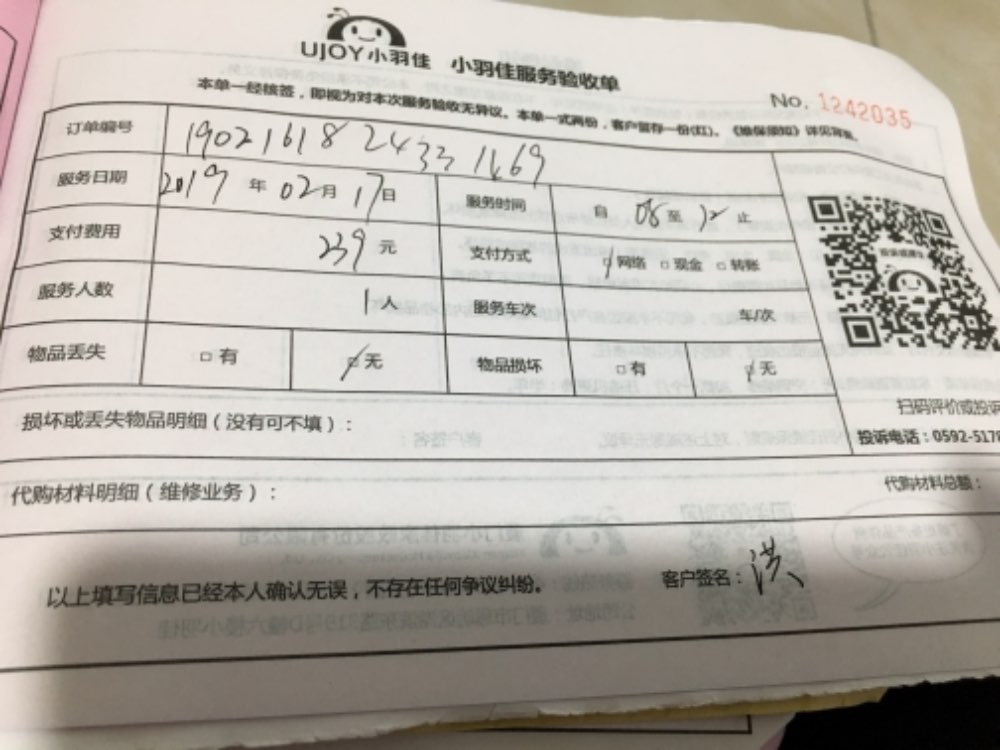 UJOY小羽佳 小羽佳服务验收单
No. 1242035
本单一经核签，即视为对本次服务验收无异议。本单一式两份，客户留存一份(红)。《维保须知》详见背面。
订单编号 19021618 2433 1169
服务日期 2019 年 02 月 17 日 服务时间 自 08 至 12 止
支付费用 239 元 支付方式 □网络 □现金 □转账
服务人数 1 人 服务车次 车/次
物品丢失 □有 □无 物品损坏 □有 □无
扫码评价或投诉
损坏或丢失物品明细（没有可不填）：
投诉电话：0592-5178
代购材料明细（维修业务）：
代购材料总额：
以上填写信息已经本人确认无误，不存在任何争议纠纷。 客户签名：洪